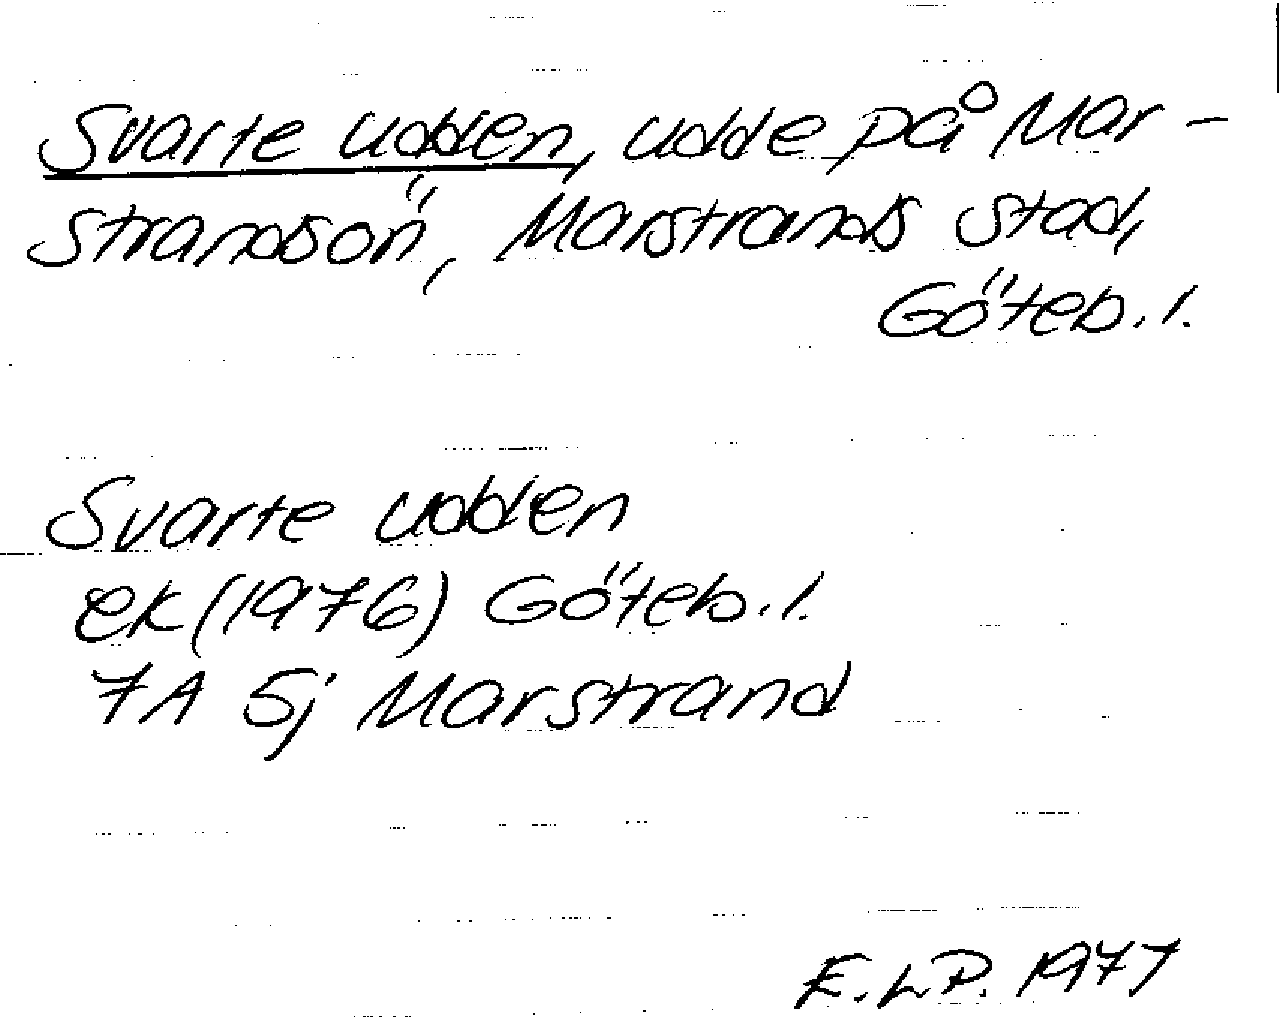 Svarte udden, udde på Mar-
strandsön, Marstrands stad,
Göteb. l.
Svarte udden
ek (1976) Göteb. l.
7A 5j Marstrand
E.LP. 1977